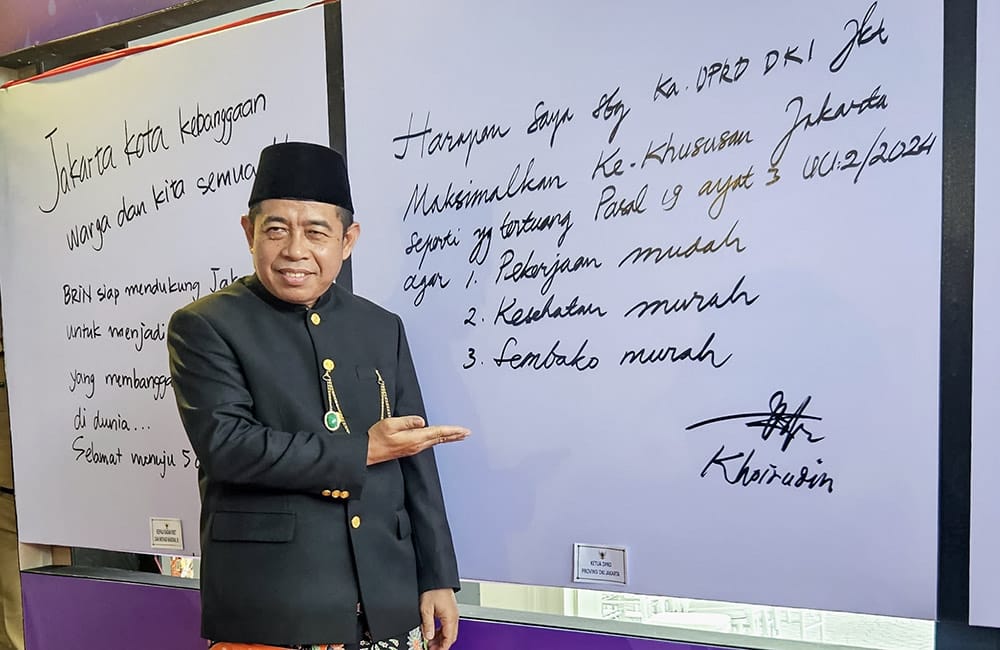 Jakarta kota kebanggaan
warga dan kita semua
BRIN siap mendukung
untuk menjadi
yang membangga
di dunia...
Selamat menuju 5
KETUA DPRD
PROVINSI DKI JAKARTA
Harapan Saya Sbg Ka. DPRD DKI Jkt
Maksimalkan Ke-Khususan Jakarta
Seperti yg tertuang Pasal 19 ayat 3 UU:2/2024
agar 1. Pekerjaan mudah
2. Kesehatan murah
3. Sembako murah
Khoirudin